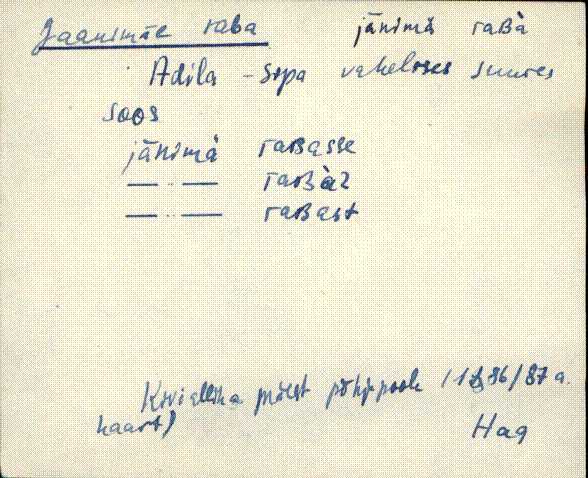 Jaanimäe raba jänimä raʙà
Adila - Sepa vahelises suures
soos
jänimä raʙasse
— „ — raʙàz
— „ — raʙast
Kiviallika mäest põhja pool (1886/87 a.
kaart)
Hag